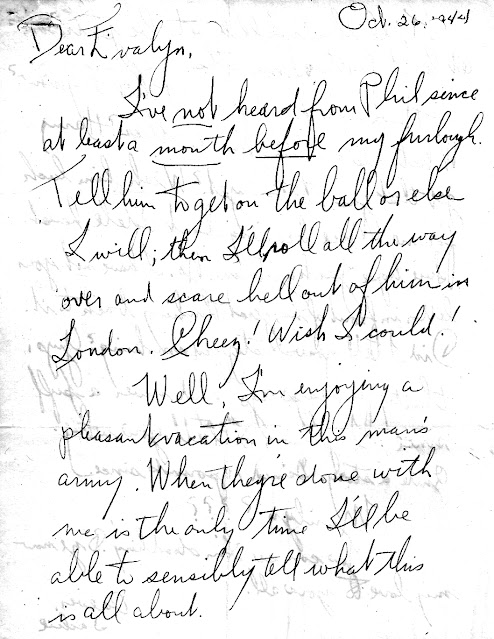 Oct. 26, 1944
Dear Evalyn,
I've not heard from Phil since
at least a month before my furlough.
Tell him to get on the ball or else
I will; then I'll roll all the way
over and scare hell out of him in
London. Cheez! Wish I could!
Well, I'm enjoying a
pleasant vacation in this man's
army. When they're done with
me is the only time I'll be
able to sensibly tell what this
is all about.